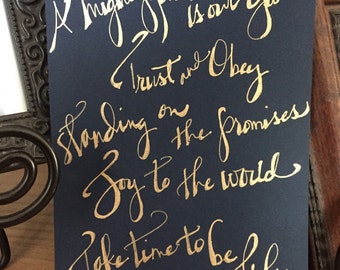 A mighty
is our God
Trust and Obey
standing on
the promises
Joy to the world
Take time to be